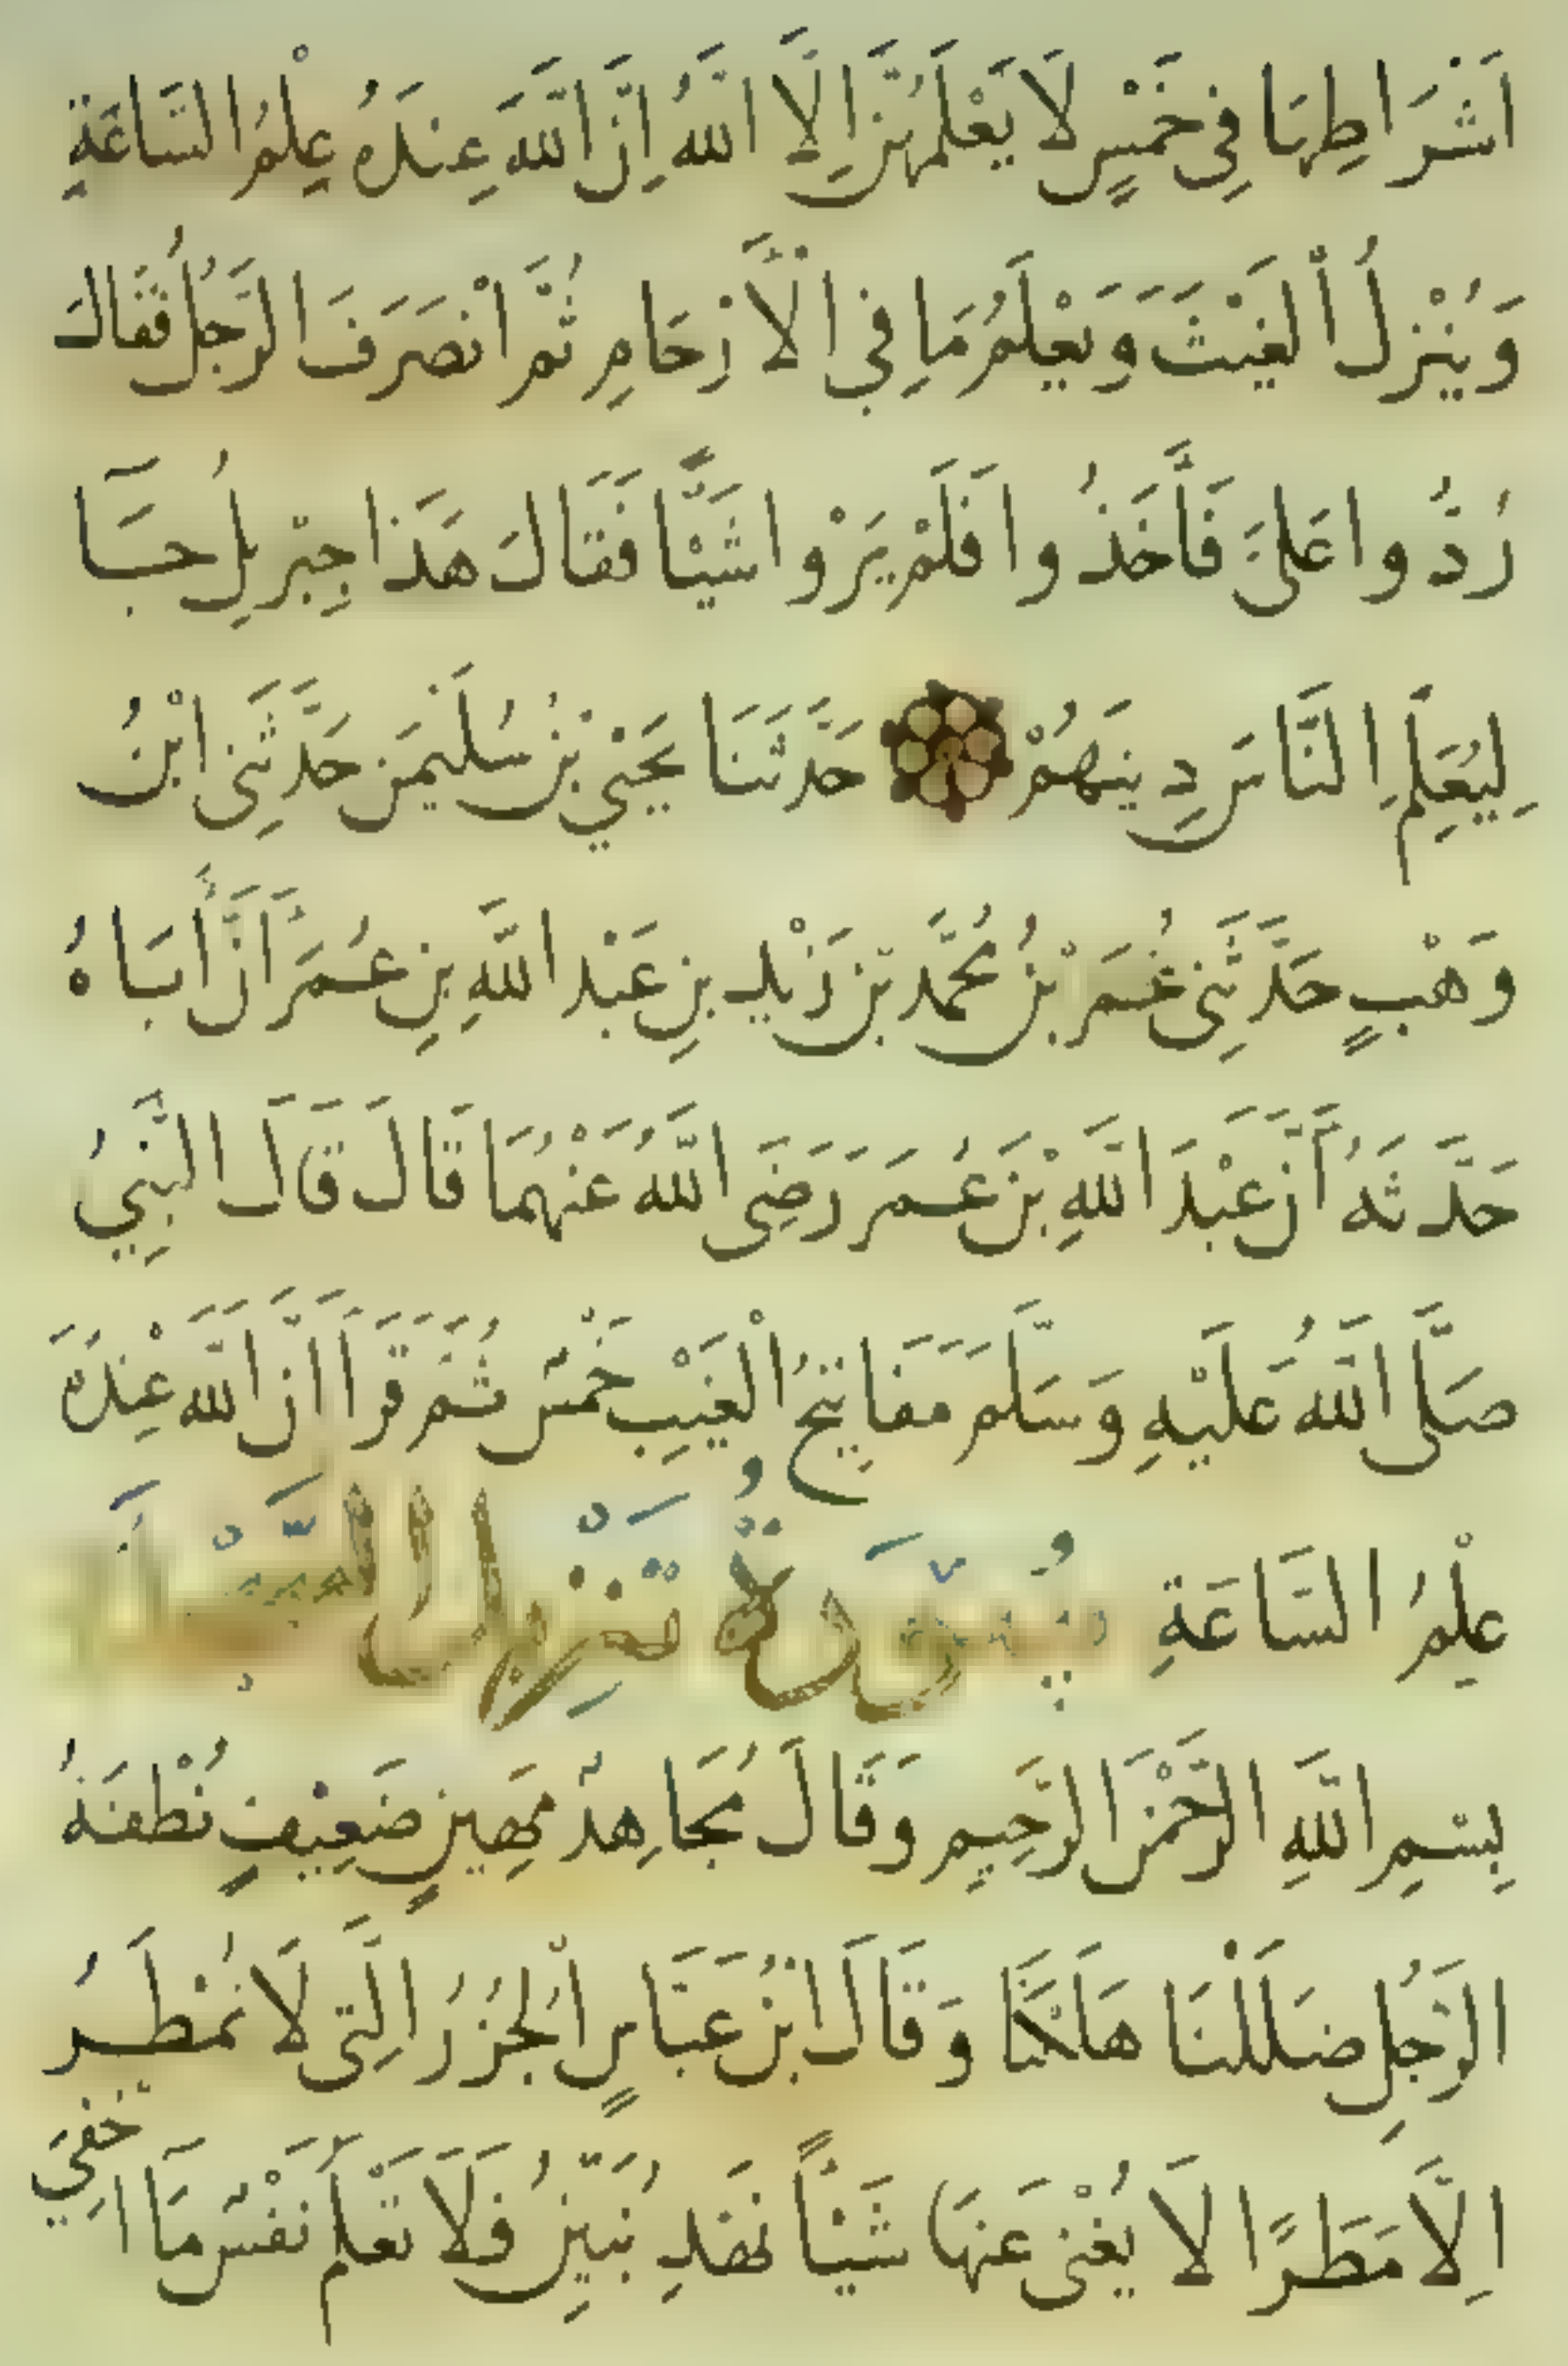 اَشْرَاطِهَا فِي خَمْسٍ لَا يَعْلَمُهُنَّ اِلَّا اللَّهُ اِنَّ اللَّهَ عِنْدَهُ عِلْمُ السَّاعَةِ
وَيُنْزِلُ الْغَيْثَ وَيَعْلَمُ مَا فِي الْأَرْحَامِ ثُمَّ انْصَرَفَ الرَّجُلُ فَقَالَ
رُدُّوا عَلَيَّ فَأَخَذُوا فَلَمْ يَرَوْا شَيْئًا فَقَالَ هَذَا جِبْرِيلُ جَاءَ
لِيُعَلِّمَ النَّاسَ دِينَهُمْ حَدَّثَنَا يَحْيَى بْنُ سُلَيْمَنَ حَدَّثَنِي ابْنُ
وَهْبٍ حَدَّثَنِي عُمَرُ بْنُ مُحَمَّدِ بْنِ زَيْدِ بْنِ عَبْدِ اللَّهِ بْنِ عُمَرَ أَنَّ أَبَاهُ
حَدَّثَهُ أَنَّ عَبْدَ اللَّهِ بْنَ عُمَرَ رَضِيَ اللَّهُ عَنْهُمَا قَالَ قَالَ النَّبِيُّ
صَلَّى اللَّهُ عَلَيْهِ وَسَلَّمَ مَفَاتِيحُ الْغَيْبِ خَمْسٌ ثُمَّ قَرَأَ اِنَّ اللَّهَ عِنْدَهُ
عِلْمُ السَّاعَةِ سُورَةُ تَنْزِيلُ السَّجْدَةِ
بِسْمِ اللَّهِ الرَّحْمَنِ الرَّحِيمِ وَقَالَ مُجَاهِدٌ مَهِينٍ ضَعِيفٍ نُطْفَةُ
الرَّجُلِ ضَلَلْنَا هَلَكْنَا وَقَالَ ابْنُ عَبَّاسٍ الْجُرُزُ الَّتِي لَا تُمْطَرُ
اِلَّا مَطَرًا لَا يُغْنِي عَنْهَا شَيْئًا نَهْدِ نُبَيِّنُ فَلَا تَعْلَمُ نَفْسٌ مَا اُخْفِيَ